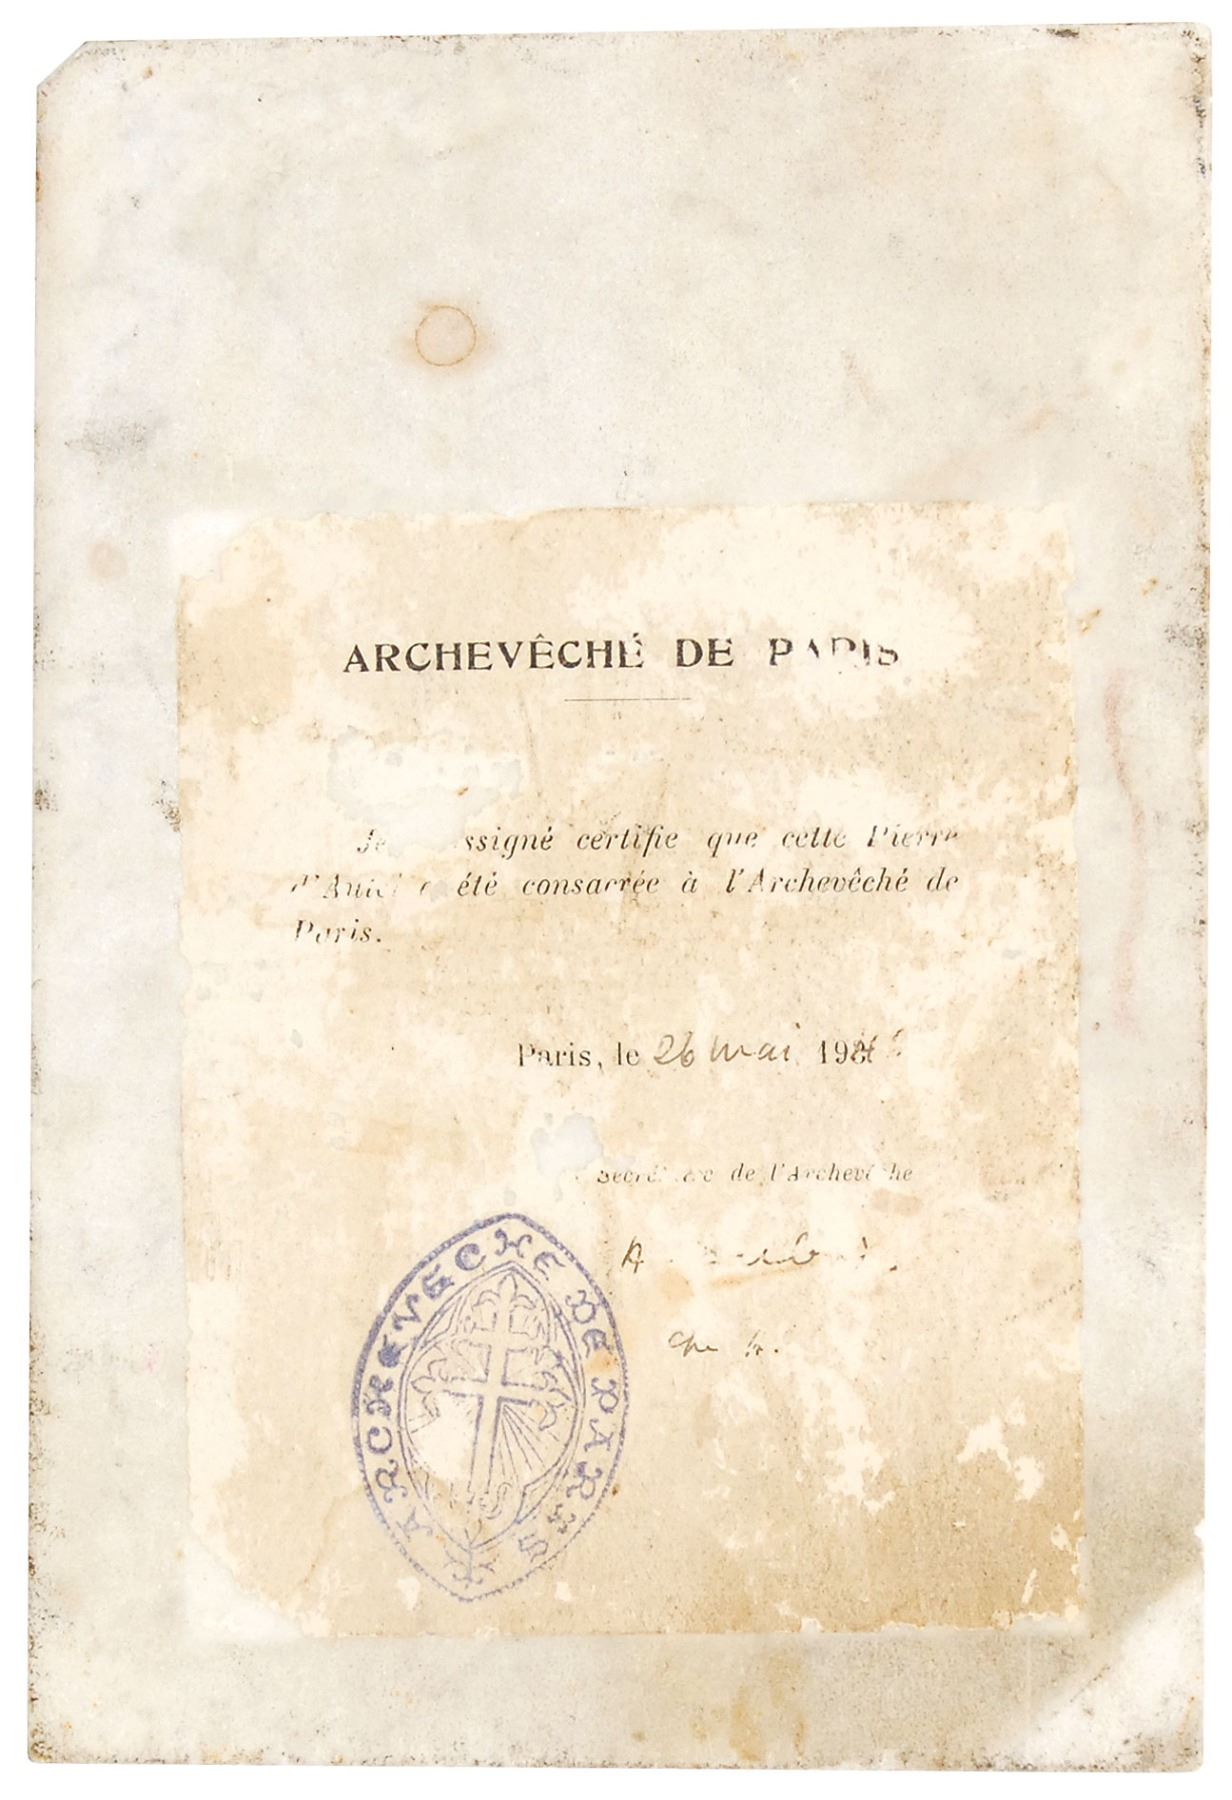 ARCHEVÊCHÉ DE PARIS
Je ssigné certifie que cette Pierre
d'Autel a été consacrée à l'Archevêché de
Paris.
Paris, le 26 mai 19
Secrétaire de l'Archevêché
ARCHEVECHE DE PARIS